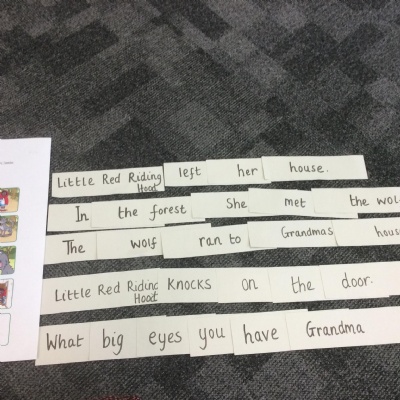 Little Red Riding Hood left her house.
In the forest She met the wol
The wolf ran to Grandmas hous
Little Red Riding Hood KNOCKS on the door.
What big eyes you have Grandma